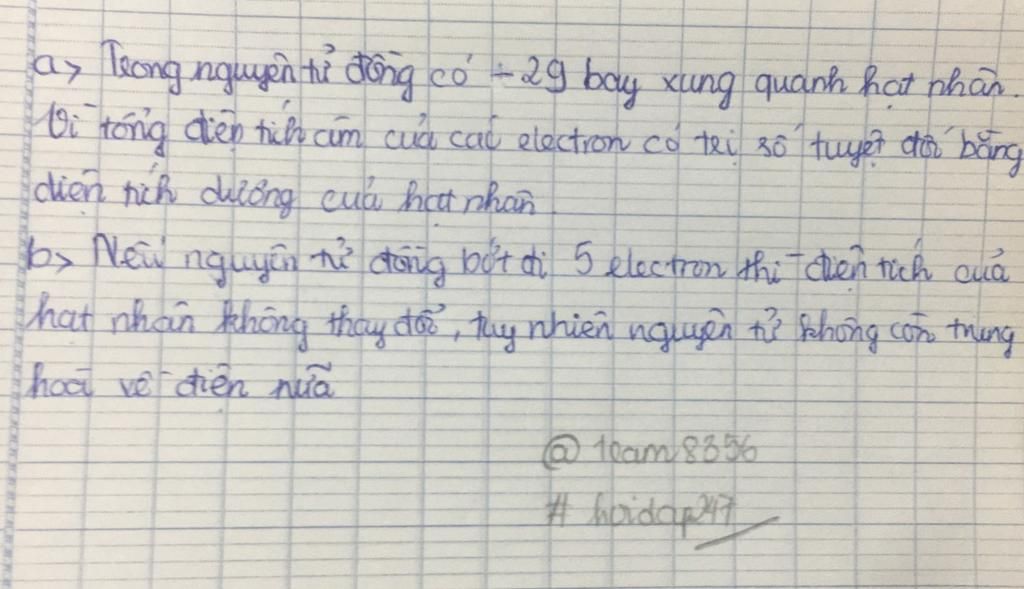 a> Trong nguyên tử đồng có -29 bay xung quanh hạt nhân.
Vì tổng điện tích âm của các electron có trị số tuyệt đối bằng
điện tích dương của hạt nhân
b> Nếu nguyên tử đồng bớt đi 5 electron thì điện tích của
hạt nhân không thay đổi, tuy nhiên nguyên tử không còn trung
hoà về điện nữa
@ team8356
# hoidap247